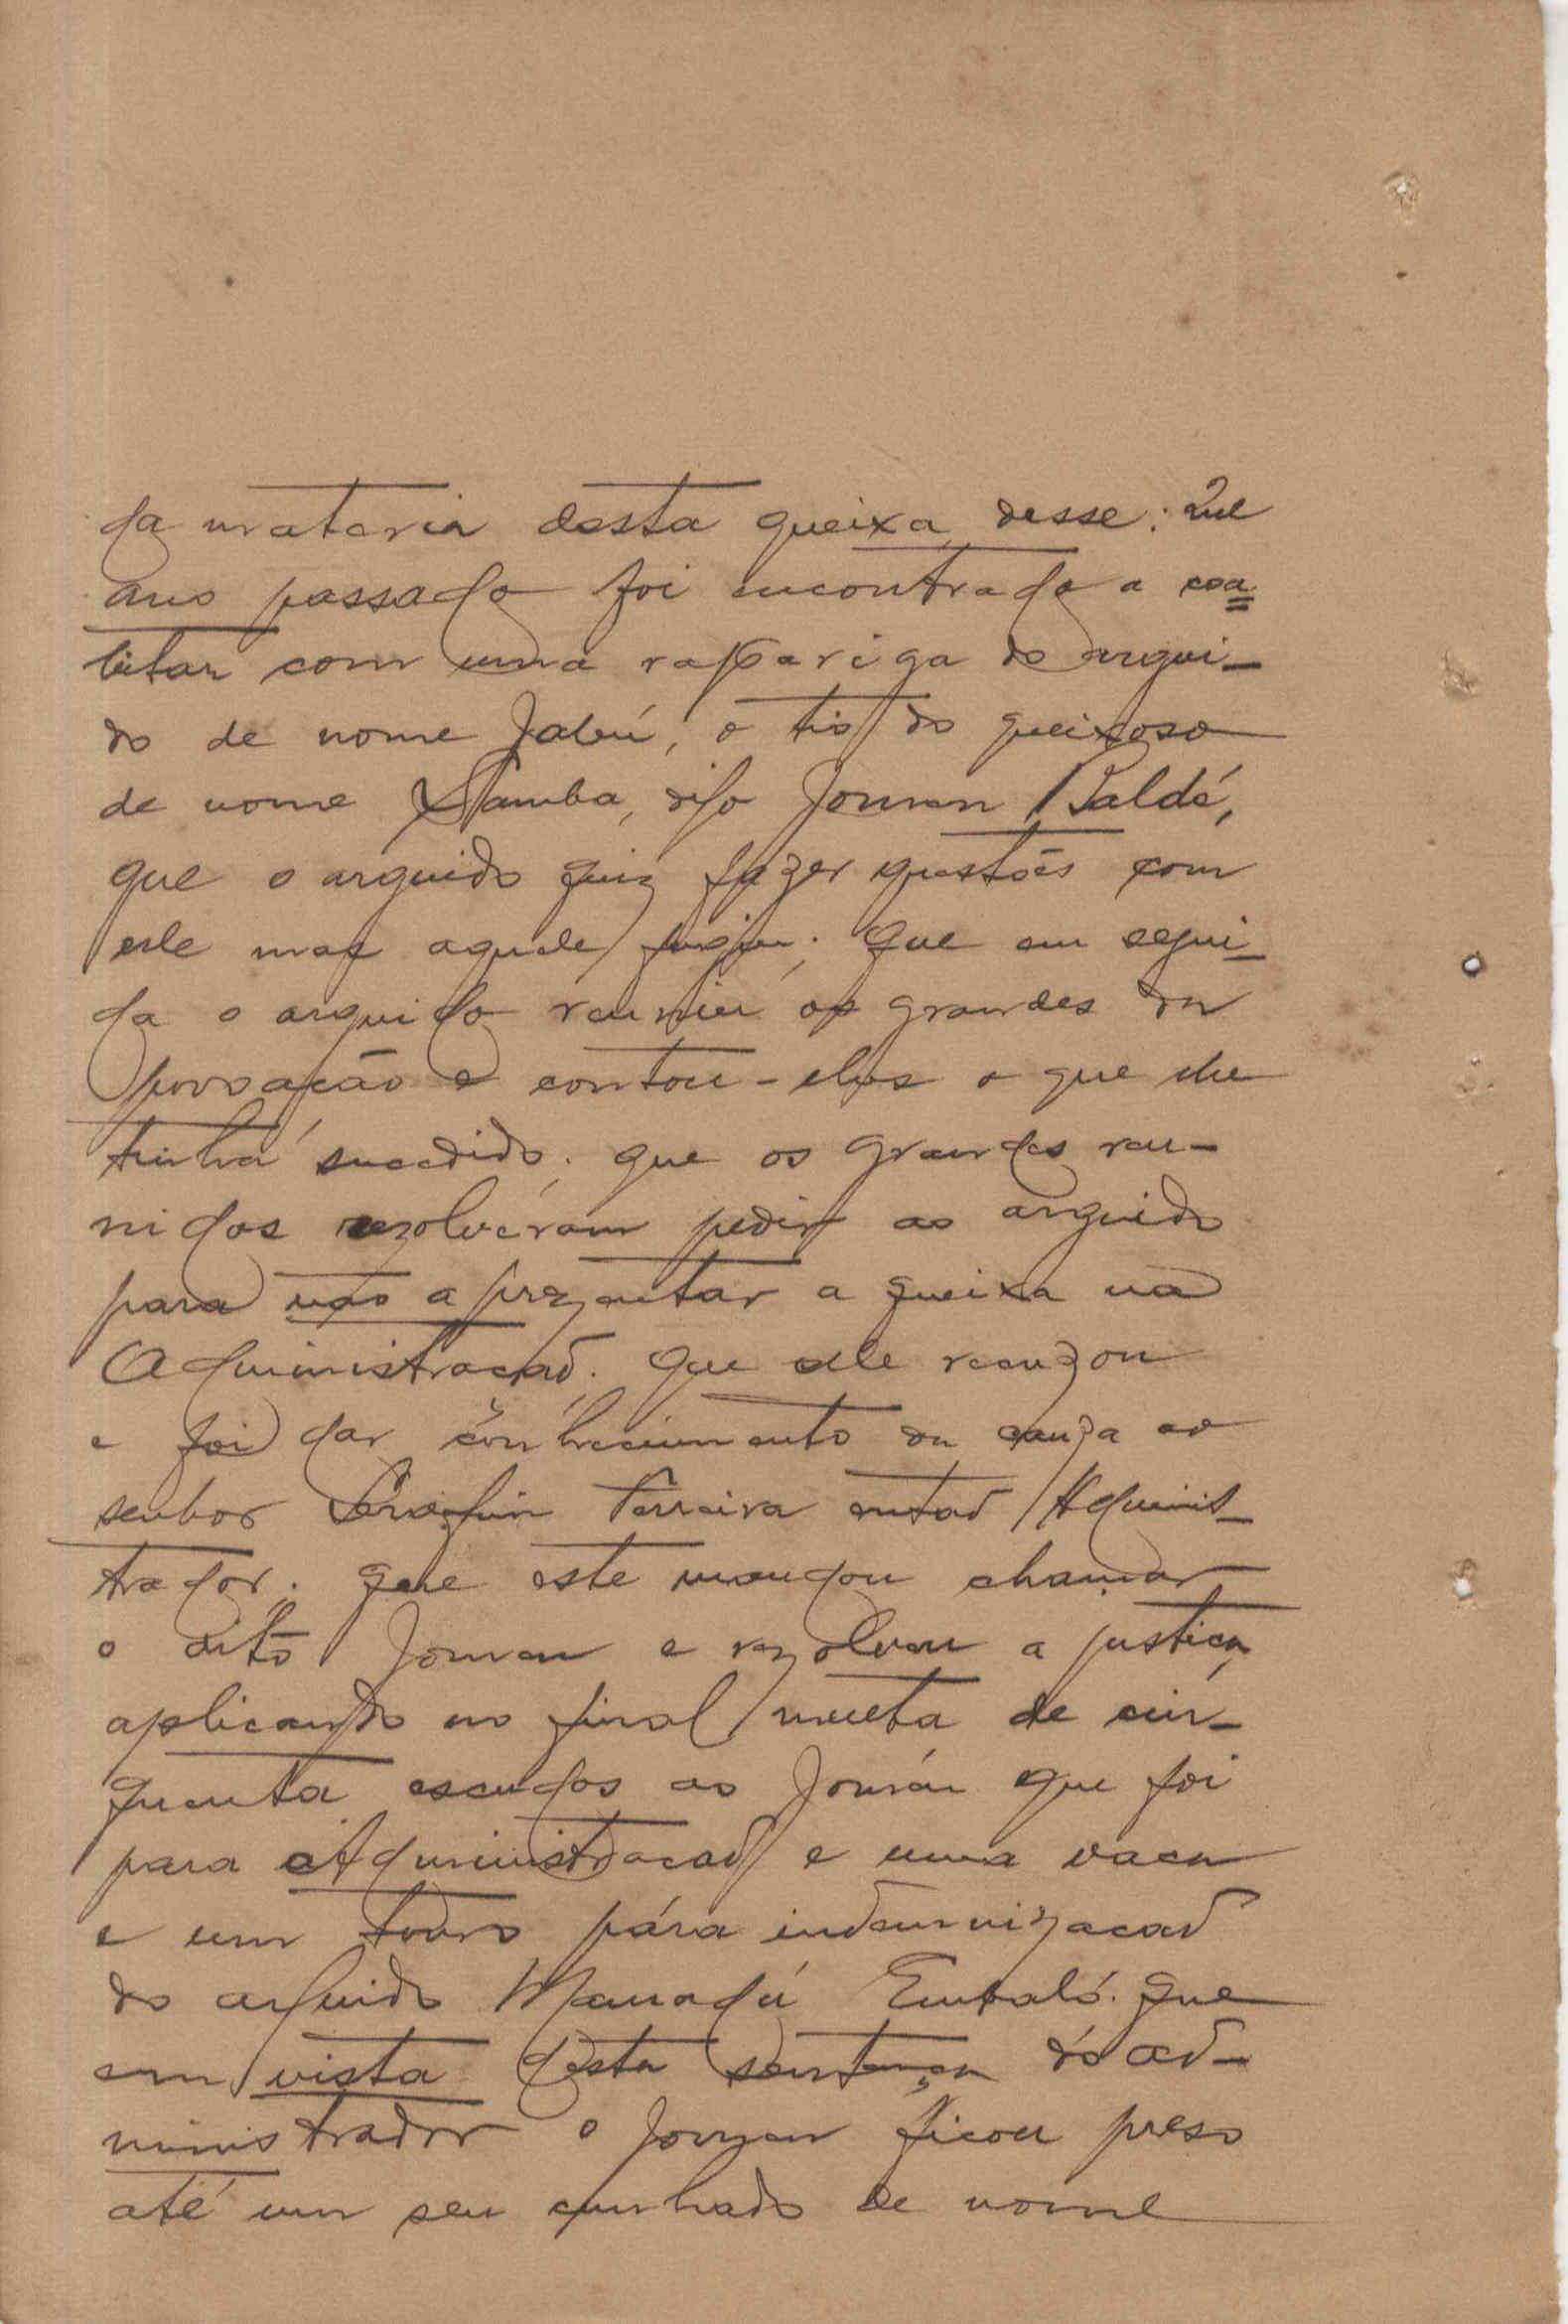 da materia desta queixa, desse: Que
ano passado foi encontrado a coa=
bitar com uma rapariga do argui-
do de nome Jabú, o tio do queixoso
de nome Samba, digo Jouman Baldé,
que o arguido quiz fazer questões com
ele mas aquele fugiu; que em segui-
da o arguido reuniu os grandes da
povoação e contou-lhes o que lhe
tinha sucedido; que os grandes reu-
nidos rezolveram pedir ao arguido
para não aprezentar a queixa na
Administracaõ; que ele recuzou
e foi dar conhecimento da cauza ao
senhor Serafim Ferreira entaõ Adminis-
trador; que este mandou chamar
o dito Jouman e rezolveu a justiça,
aplicando no final multa de cin-
quenta escudos ao Joumán que foi
para Administracaõ e uma vaca
e um touro pára indemnizacaõ
do arguido Mamadú Embaló. Que
em vista desta sentença do ad-
ministrador o Jouman ficou preso
até um seu cunhado de nome